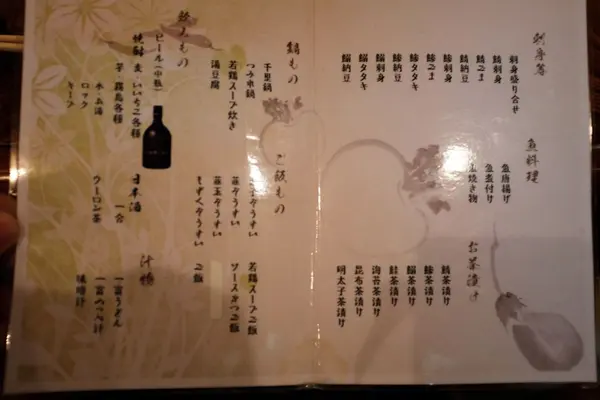 刺身等
刺身盛り合せ
鯖刺身
鯖ごま
鯖納豆
鯵刺身
鯵ごま
鯵タタキ
鯵納豆
鰯刺身
鰯タタキ
鰯納豆
魚料理
魚唐揚げ
魚煮付け
焼き物
お茶漬け
鯖茶漬け
鯵茶漬け
鰯茶漬け
鮭茶漬け
海苔茶漬け
昆布茶漬け
明太子茶漬け
鍋もの
千里鍋
つみ車鍋
若鶏スープ炊き
湯豆腐
ご飯もの
玉子ぞうすい
もずくぞうすい
若鶏スープご飯
ソースかつご飯
ご飯
飲みもの
ビール(中瓶)
焼酎 麦・いいちこ各種
芋・霧島各種
水・お湯
ロック
キープ
日本酒
一合
ウーロン茶
汁物
一富うどん
味噌汁